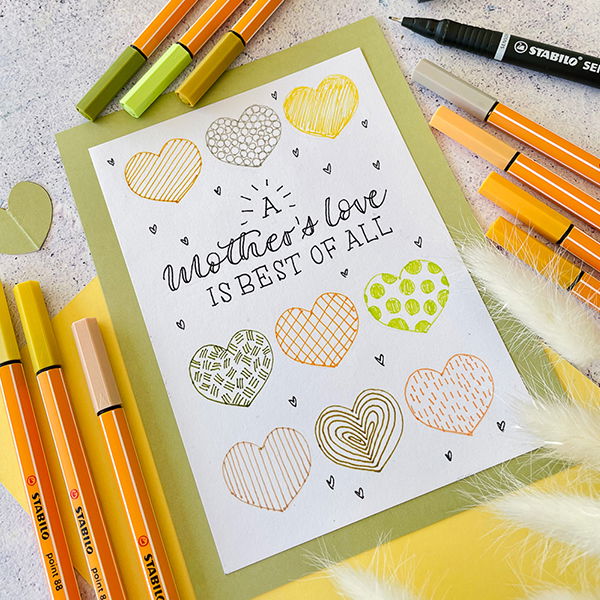 STABILO SEN
A
mother's love
IS BEST OF ALL
STABILO point 88
STABILO point 88
STABILO